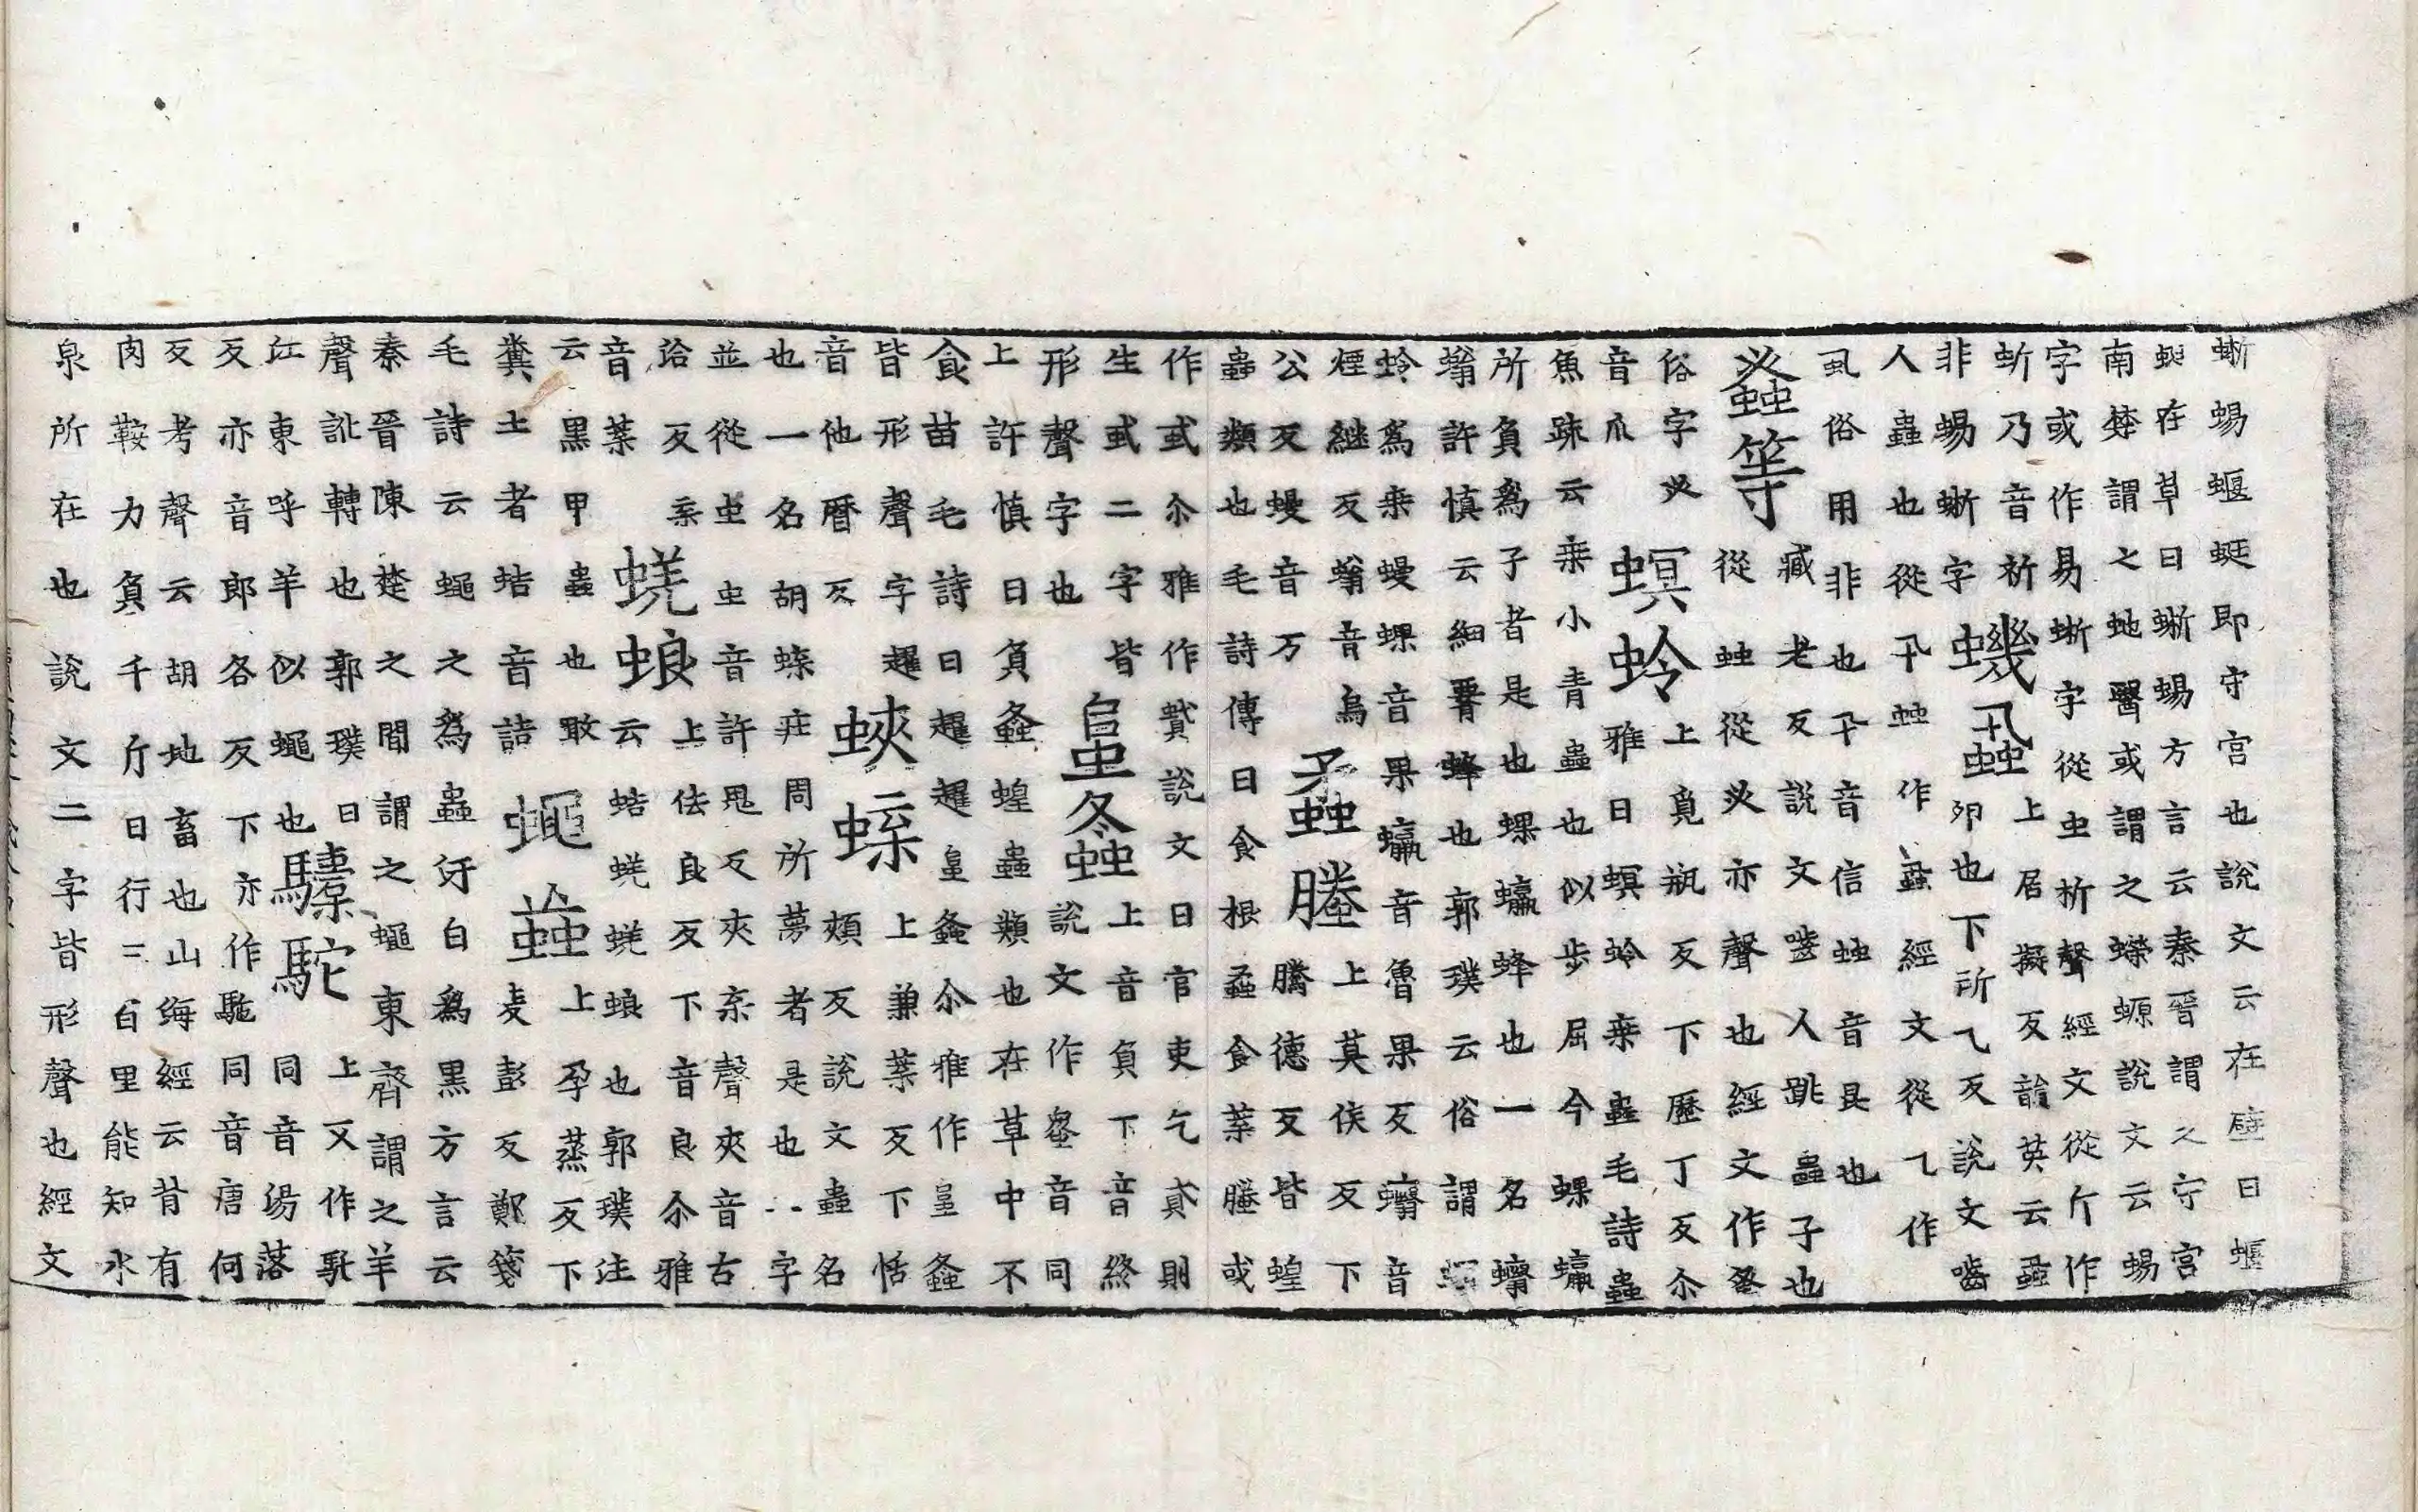 蜥蜴蝘蜓即守宮也說文云在壁曰蝘
蜓在草曰蜥蜴方言云秦晉謂之守宮
南楚謂之虵醫或謂之蠑螈說文云蜴
字或作易蜥字從虫析聲經文從斤作
蚚乃音祈
非蜴蜥字
蟣蝨
上居擬反韻英云蝨
卵也下所乁反說文嚙
人蟲也從卂䖵作蝨經文從乁作
虱俗用非也卂音信䖵音昆也
蚤等
臧老反說文嚙人跳蟲子也
從䖵從㕚亦聲也經文作蚤
俗字㕚
音爪
螟蛉
上覓瓶反下歷丁反尒
雅曰螟蛉桒蟲毛詩蟲
魚疏云桒小青蟲也似步屈今蜾蠃
所負爲子者是也蜾蠃蜂也一名蠮
螉許慎云細䙅蜂也郭璞云俗謂
蛉爲桒蟃蜾音果蠃音魯果反蠮音
煙繼反螉音烏
公反蟃音万
蟊螣
上莫侯反下
騰德反皆蝗
蟲類也毛詩傳曰食根蟊食葉螣或
作䘍尒雅作蟘說文曰官吏乞貣則
生䘍二字皆
形聲字也
阜螽
上音負下音終
說文作𧒒音同
上許慎曰負螽蝗蟲類也在草中不
食苗毛詩曰趯趯阜螽尒雅作阜螽
皆形聲字趯
音他曆反
蛺蝶
上兼葉反下恬
頰反說文蟲名
也一名胡蝶莊周所夢者是也二字
並從虫虫音許鬼反夾枼聲夾音古
洽反枼
音葉
蜣蜋
上佉良反下音良尒雅
云蛣蜣蜣蜋也郭璞注
云黑甲蟲也噉
糞土者蛣音詰
蠅䖟
上孕蒸反下
麦彭反鄭箋
毛詩云蠅之爲蟲汙白爲黑方言云
秦晉陳楚之間謂之蠅東齊謂之羊
聲訛轉也郭璞曰
江東呼羊似蠅也
驝駝
上又作馲
同音湯落
反亦音郎各反下亦作駞同音唐何
反考聲云胡地畜也山海經云昔有
肉鞍力負千斤日行三百里能知水
泉所在也說文二字皆形聲也經文